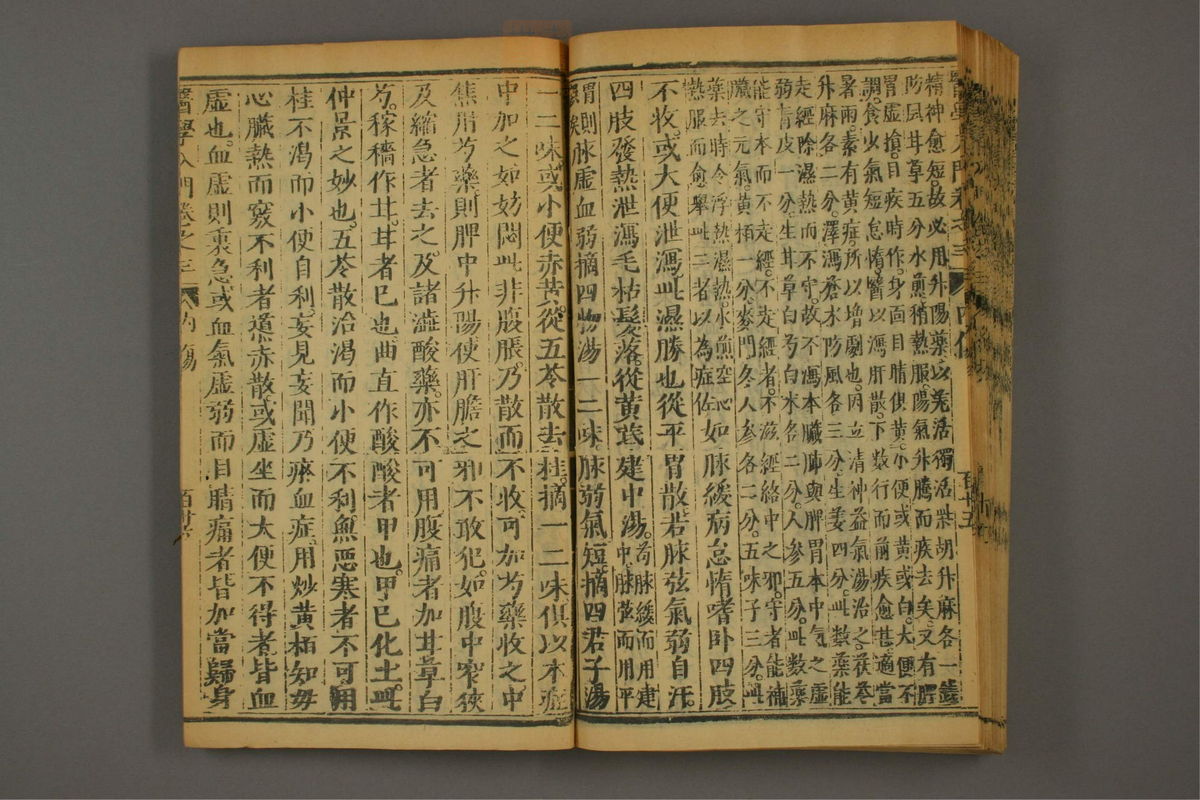 精神愈短。故必用升陽藥。以羌活獨活柴胡升麻各一錢
防風甘草五分水煎稍熱服。陽氣升騰而疾去矣。又有脾
胃虛損。目疾時作。身面目睛俱黃。小便或黃或白。大便不
調。食少氣短怠惰。醫以瀉肝散。下數行而前疾愈甚。適當
暑雨。素有黃症。所以增劇也。因立清神益氣湯治之。茯苓
升麻各二分。澤瀉蒼朮防風各三分。生姜四分。此數藥能
走經除濕熱而不守。故不瀉本臟肺與脾胃本中氣之虛
弱。青皮一分。生甘草白芍白朮各二分。人參五分。此數藥
能守本而不走經。不走經者。不滋經絡中之邪。守者能補
臟之元氣。黃栢一分。麥門冬人參各二分。五味子三分。此
藥去時令浮熱濕熱。水煎空心
熱服而愈。舉此二者以為症佐
如脉緩病怠惰嗜卧四肢
不收。或大便泄瀉。此濕勝也從平胃散若脉弦氣弱自汗。
四肢發熱泄瀉毛枯髮落。從黃芪建中湯。
苟脉緩而用建
中脉弦而用平
胃則
誤矣
脉虛血弱摘四物湯一二味脉弱氣短。摘四君子湯
一二味。或小便赤黃。從五苓散去桂。摘一二味。俱以本症
中加之如妨悶此非腹脹。乃散而不收。可加芍藥收之中
焦用芍藥則脾中升陽使肝膽之邪不敢犯。如腹中窄狹
及縮急者去之。及諸澁酸藥。亦不可用。腹痛者加甘草白
芍。稼穡作甘。甘者巳也。曲直作酸酸者甲也。甲巳化土。此
仲景之妙也。五苓散治渴而小便不利。無惡寒者不可用
桂不渴而小便自利。妄見妄聞乃瘀血症。用炒黃栢知母
心臟熱而竅不利者。導赤散。或虛坐而大便不得者。皆血
虛也。血虛則裏急。或血氣虛弱而目睛痛者。皆加當歸身
醫學入門卷之三 內傷 百廿六